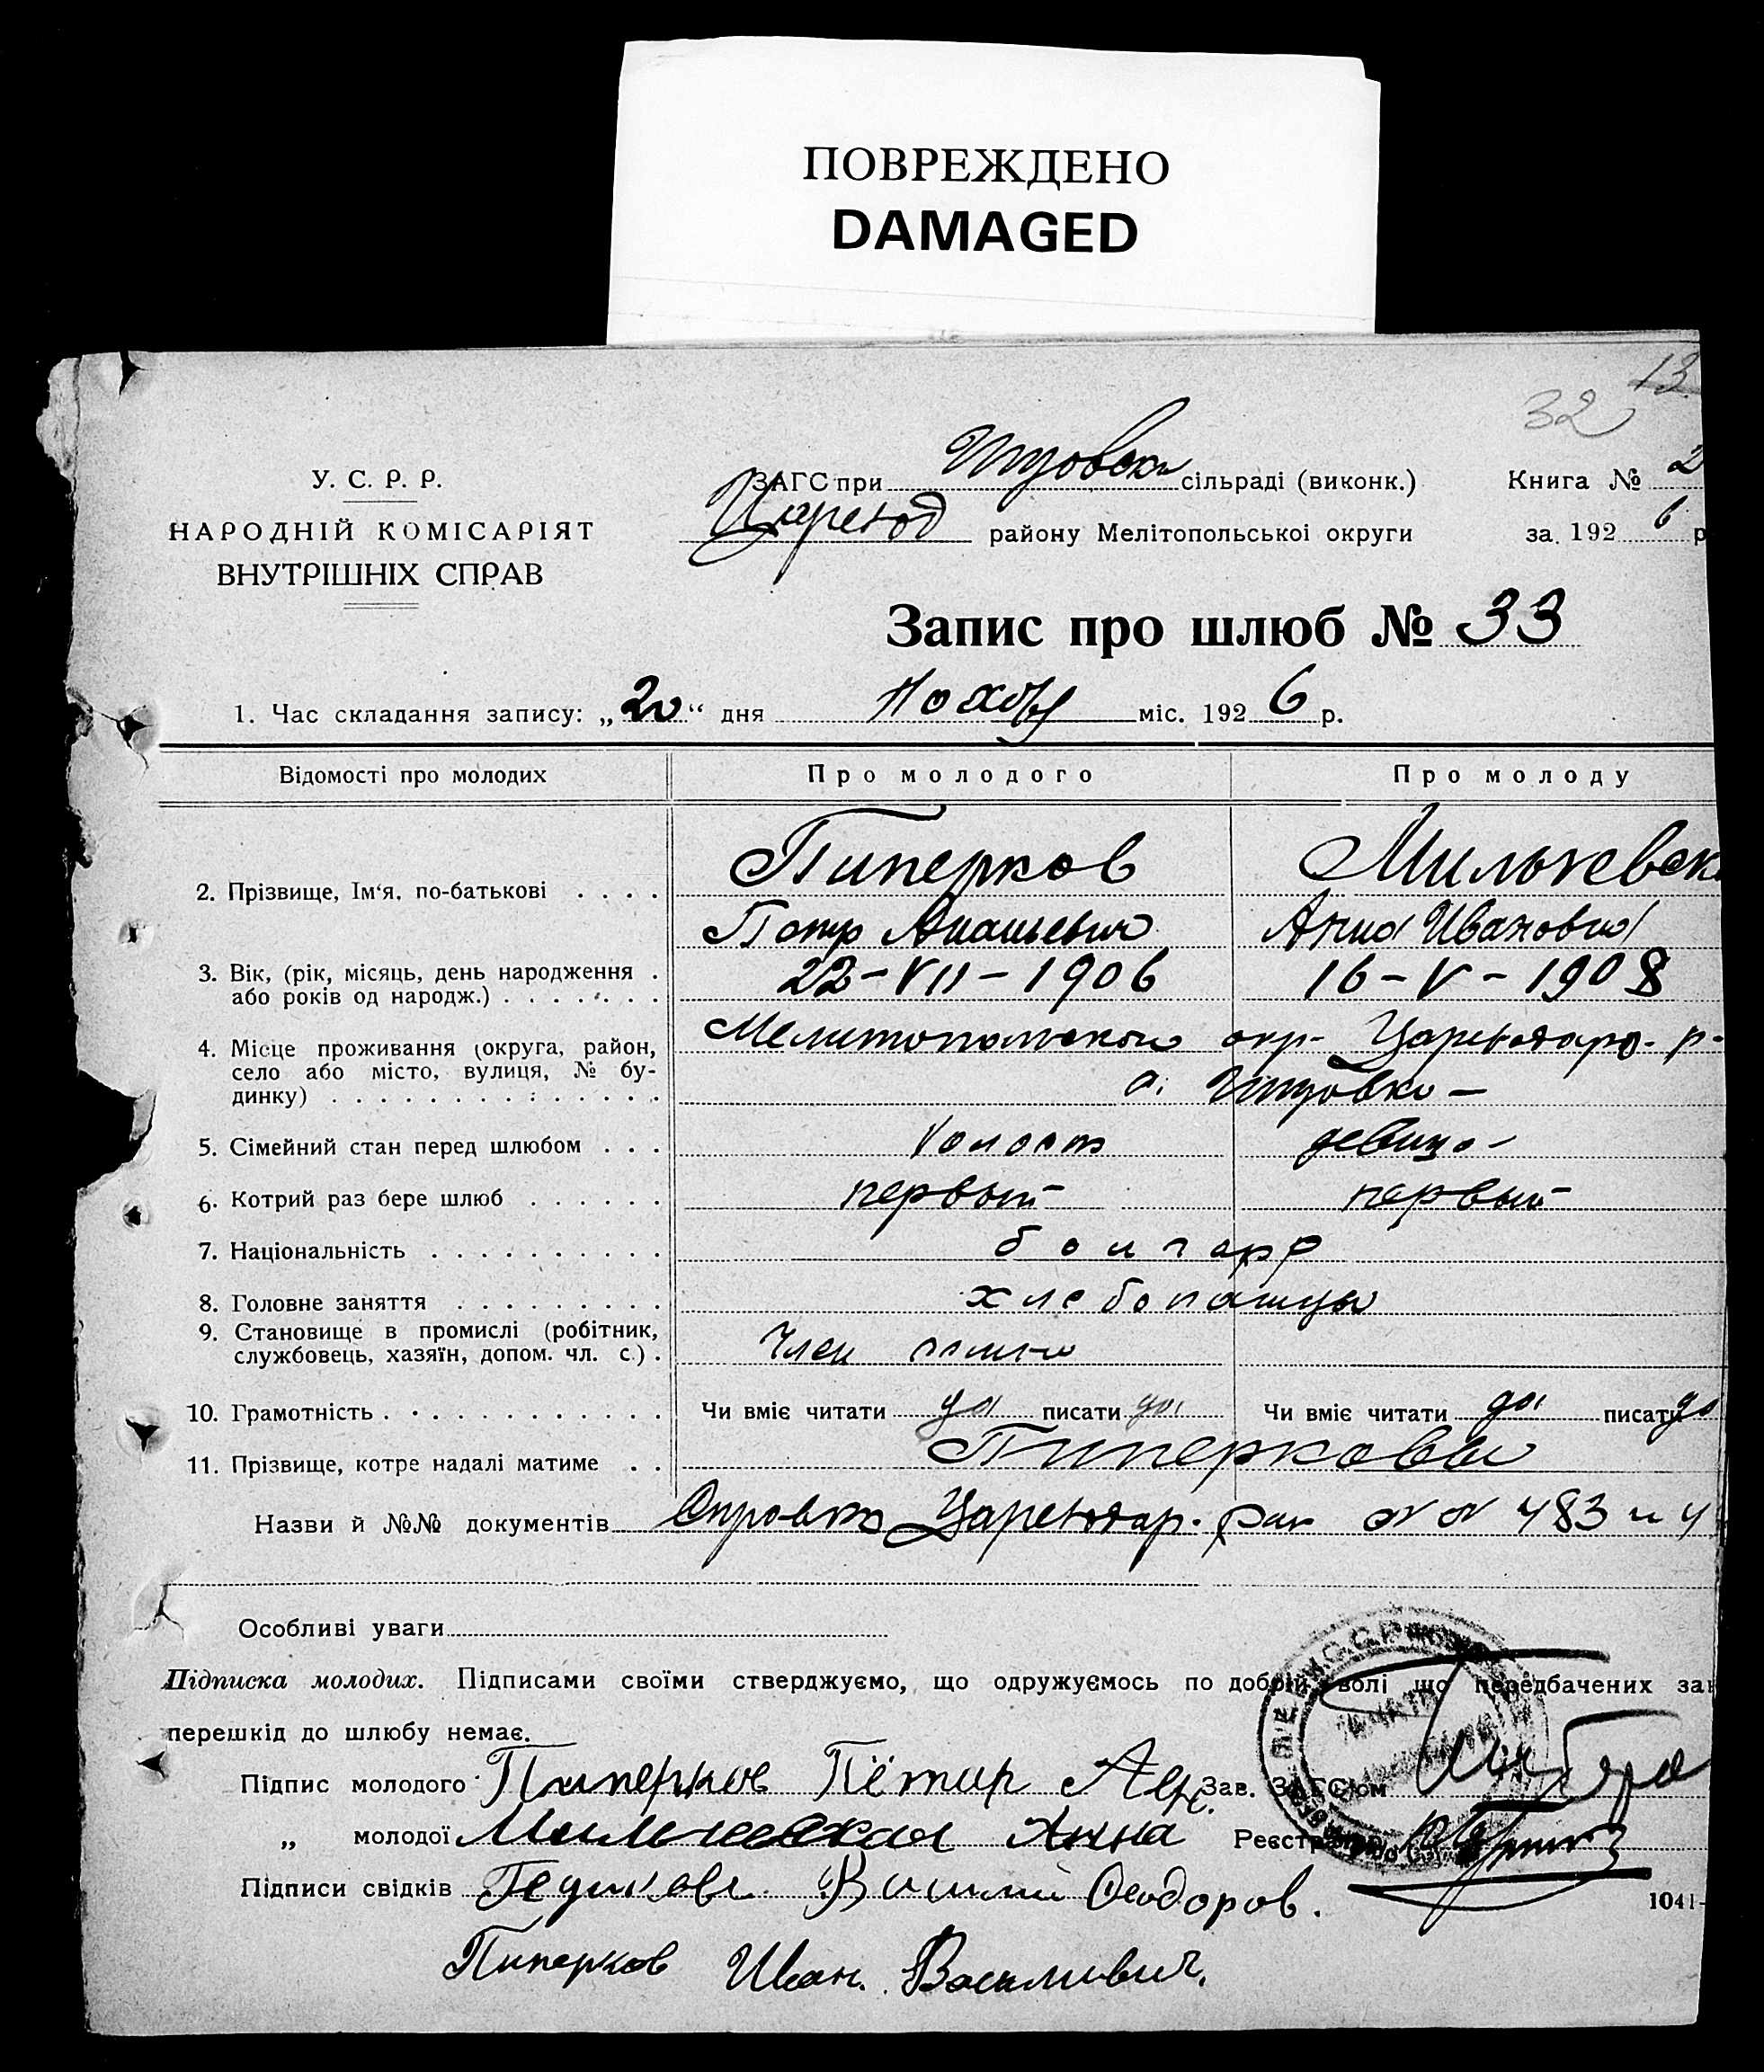 ПОВРЕЖДЕНО
DAMAGED
13
32
У. С. Р. Р.
НАРОДНІЙ КОМІСАРІЯТ
ВНУТРІШНІХ СПРАВ
ЗАГС при сільраді (виконк.)
району Мелітопольської округи
Книга № 2
за 1926 р
Запис про шлюб № 33
1. Час складання запису: „20“ дня Ноября міс. 1926 р.
Відомості про молодих Про молодого Про молоду
2. Прізвище, Ім‘я, по-батькові . . . . Пиперков Милькевск
Петр Анна Ивановна
3. Вік, (рік, місяць, день народження . 22-VII-1906 16-V-1908
або років од народж.) . . . . . . .
4. Місце проживання (округа, район, Мелитопольской окр- Царенодаро- р-
село або місто, вулиця, № бу-
динку) . . . . . . . . . . . . . . с.
5. Сімейний стан перед шлюбом . . . холост девица
6. Котрий раз бере шлюб . . . . . . первый первый
7. Національність . . . . . . . . . . болгаре
8. Головне заняття . . . . . . . . . хлебопашцы
9. Становище в промислі (робітник,
службовець, хазяїн, допом. чл. с.) . Член семьи
10. Грамотність . . . . . . . . . . . . Чи вміє читати да писати да Чи вміє читати да писати да
11. Прізвище, котре надалі матиме . . Пиперковы
Назви й №№ документів Справка Царенодар. рик № № 483 и 4
Особливі уваги
Підписка молодих. Підписами своїми стверджуємо, що одружуємось по добрій волі що передбачених зак
перешкід до шлюбу немає.
Підпис молодого Пиперков Пётир Зав. ЗАГС'ом
„ молодої Милкевская Анна Реєстратор
Підписи свідків Василий Феодоров.
1041-
Пиперков Иван. Васильевич.